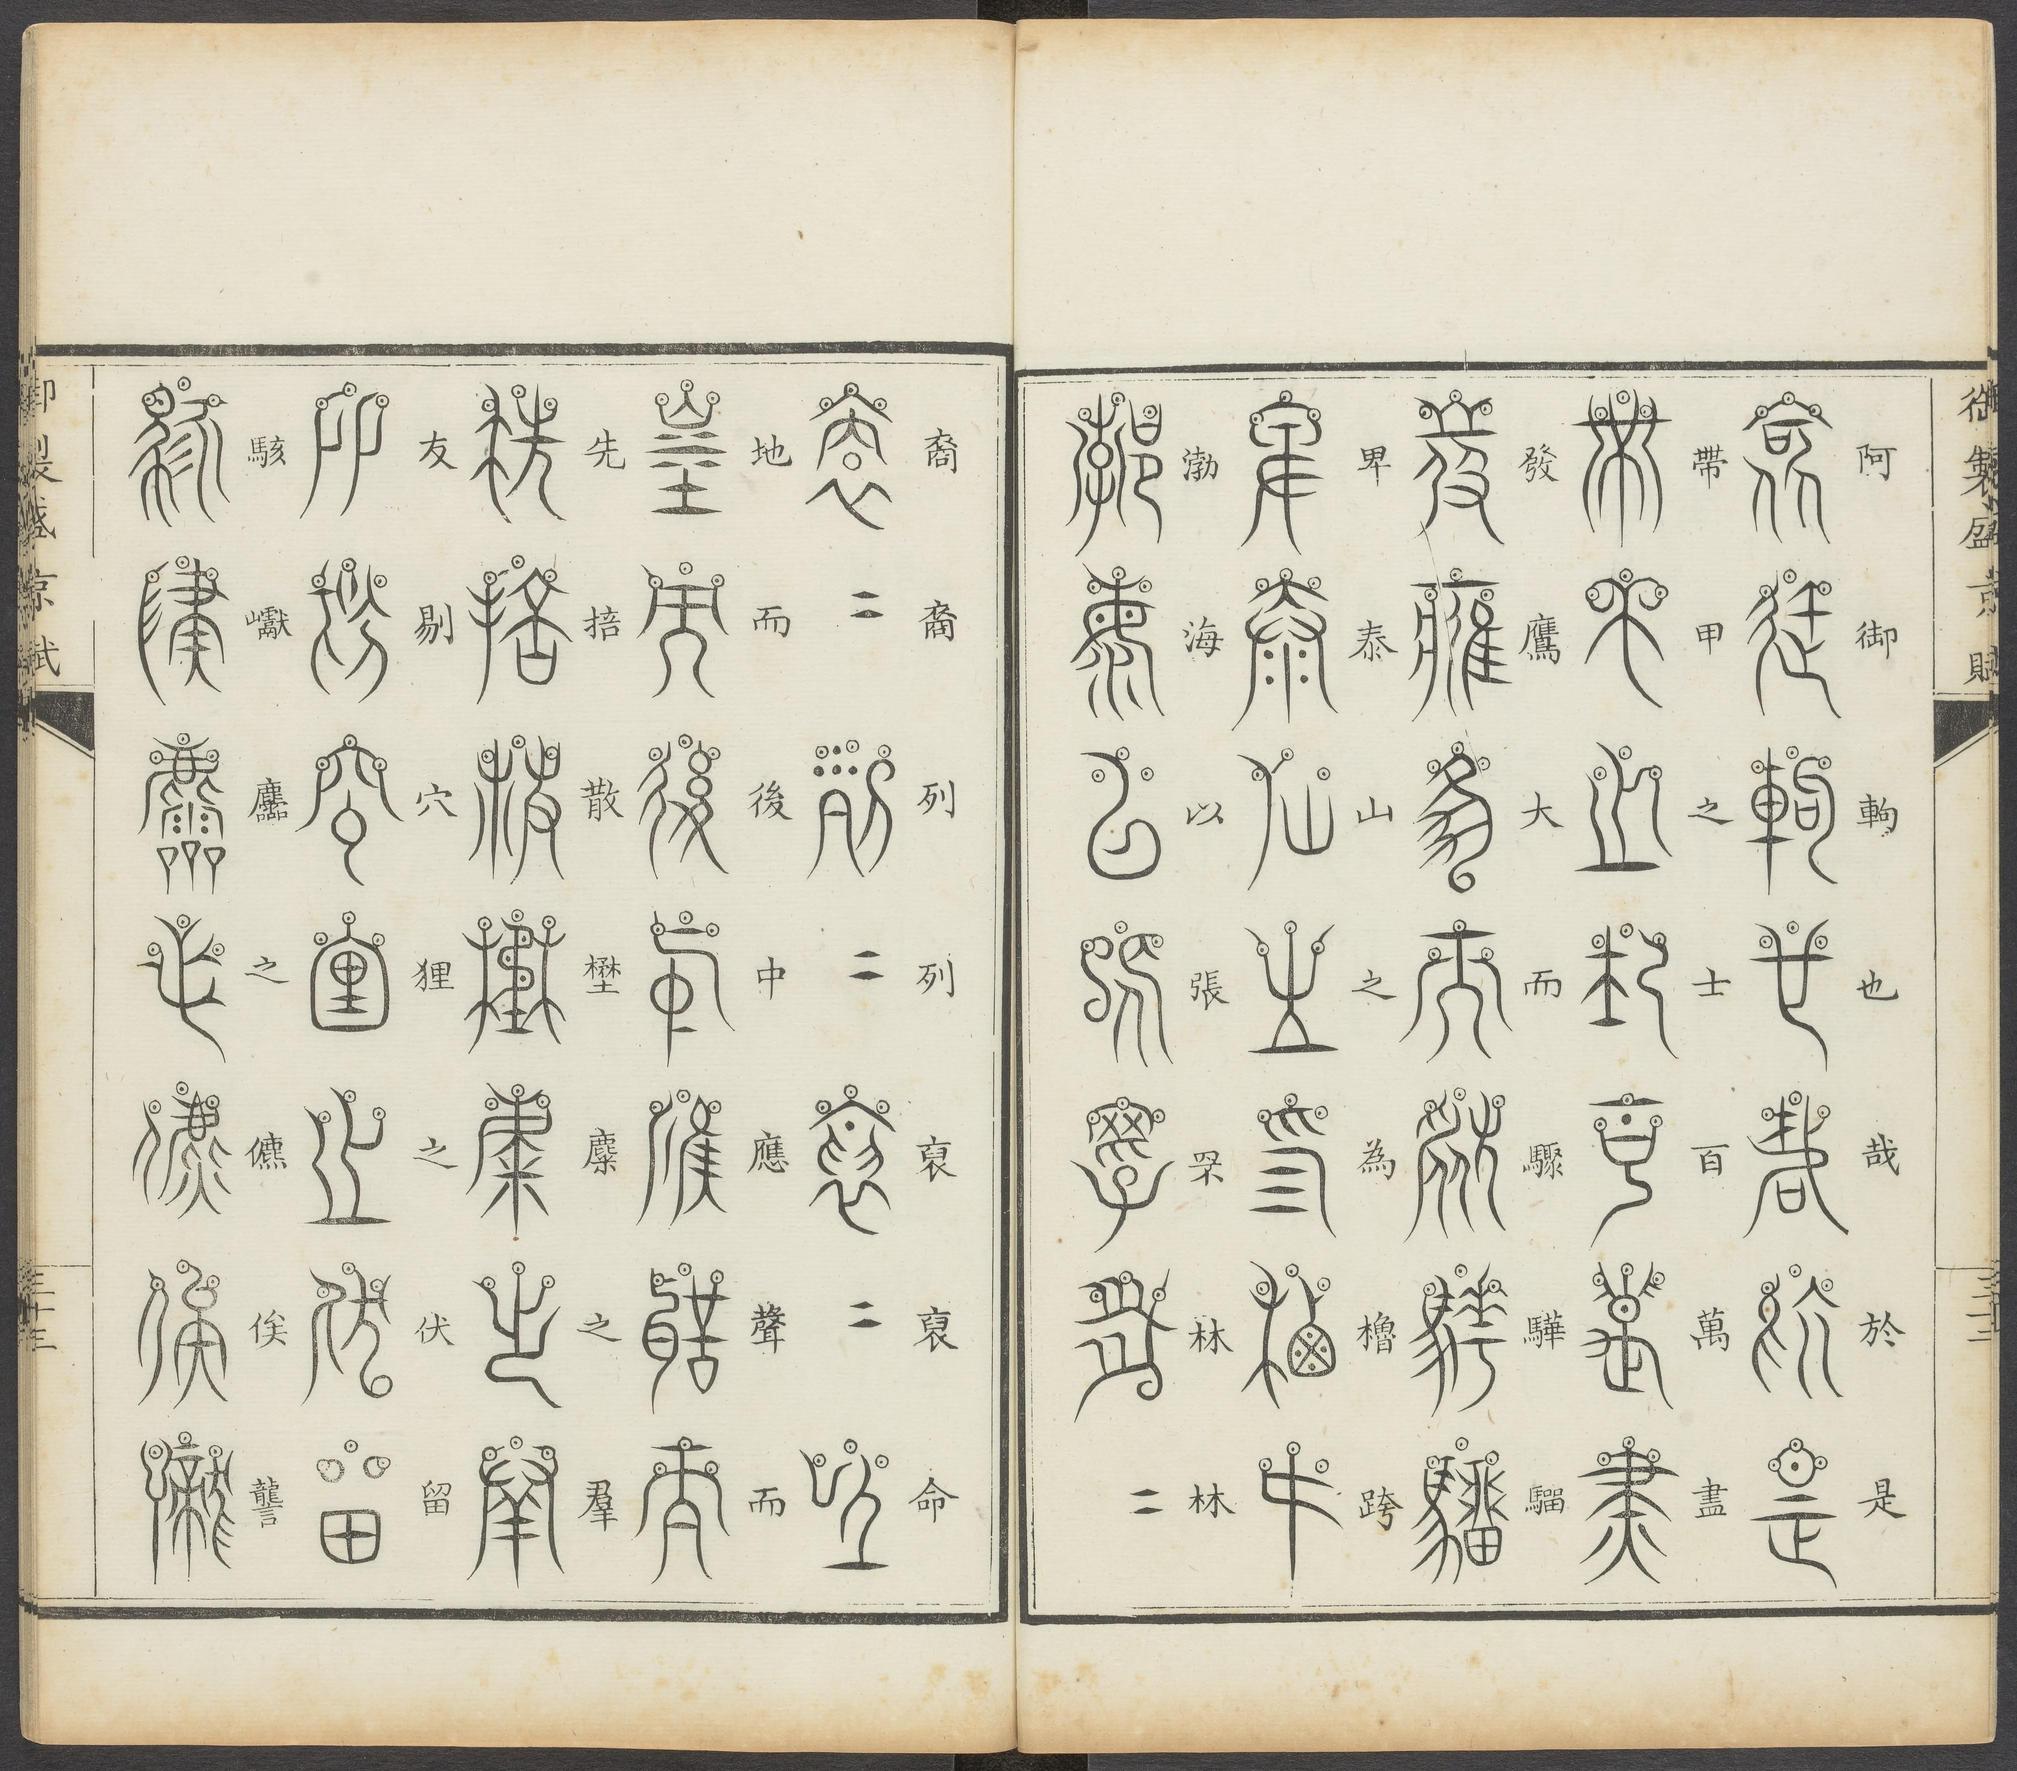 御製盛京賦
三十二
阿御軥也哉於是
帶甲之士百萬盡
發鷹大而驟驊騮
卑泰山之為櫓跨
渤海以張罘林林
裔裔列列裒裒命
地而後中應聲而
先掊散壄麋之羣
友剔穴狸之伏留
駭巘麢之儦俟讋
御製盛京賦
三十三